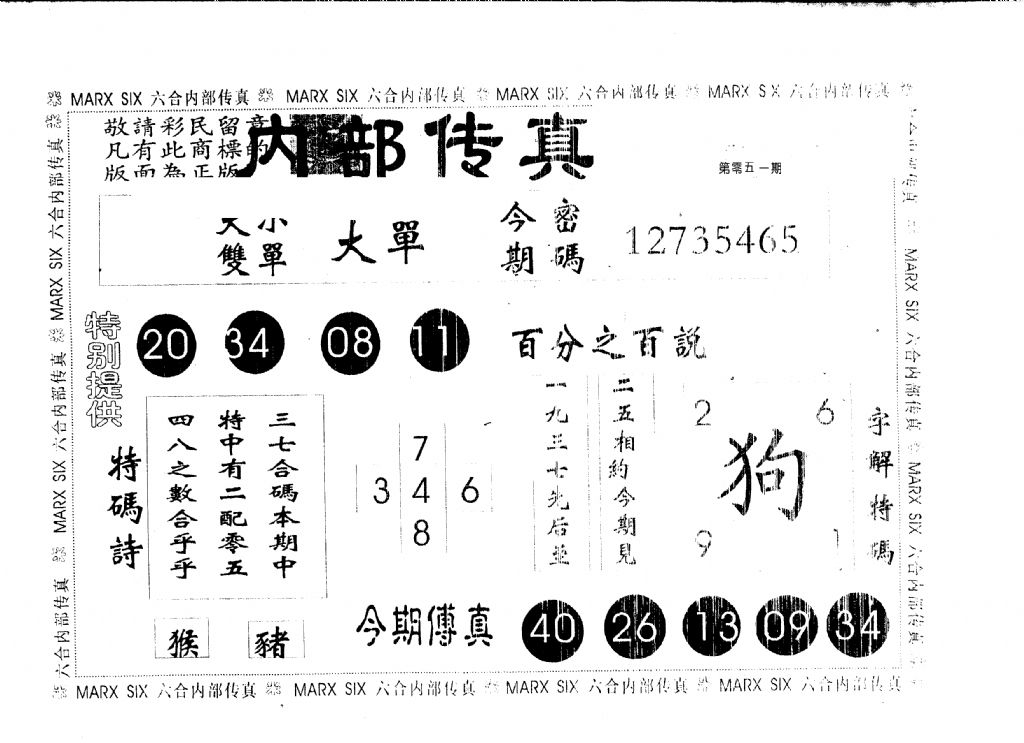 MARX SIX 六合内部传真 MARX SIX 六合内部传真 MARX SIX 六合内部传真 MARX SIX 六合内部传真
敬請彩民留意
凡有此商標的
版面為正版
内部传真
第零五一期
大小
雙單
大單
今期
密碼
12735465
特别提供
20 34 08 11
百分之百説
特碼詩
三七合碼本期中
特中有二配零五
四八之數合乎乎
7
3 4 6
8
二五相約今期見
一九三七先后並
2 6
狗
9 1
字解特碼
猴 豬
今期傳真
40 26 13 09 34
MARX SIX 六合内部传真 MARX SIX 六合内部传真
MARX SIX 六合内部传真 MARX SIX 六合内部传真
MARX SIX 六合内部传真 MARX SIX 六合内部传真 MARX SIX 六合内部传真 MARX SIX 六合内部传真